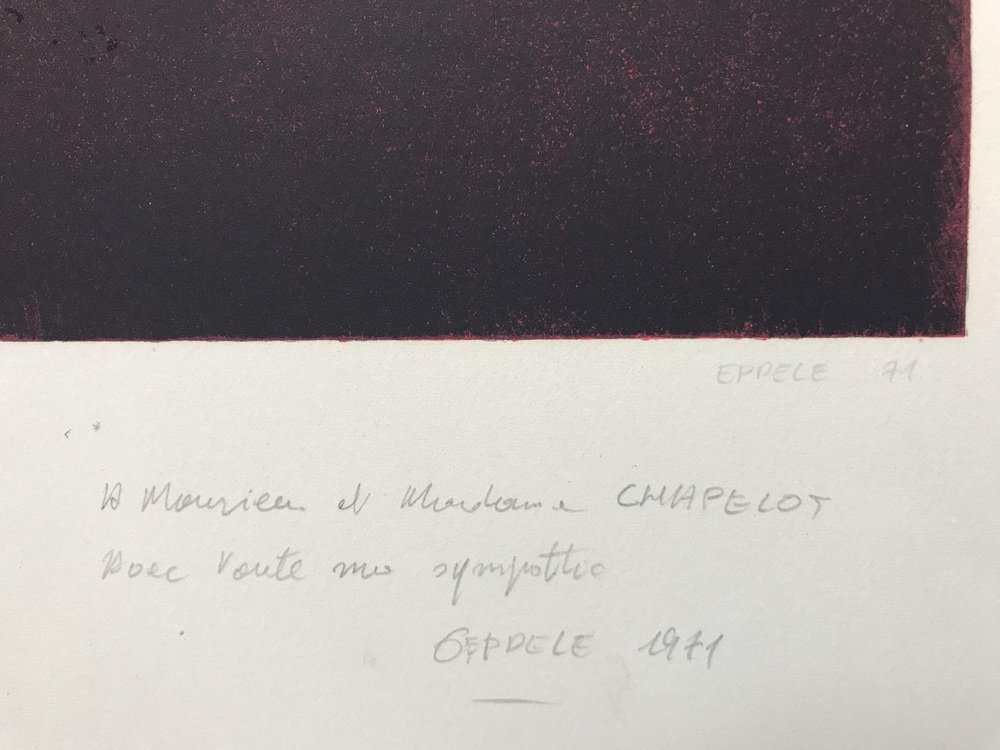 EPPELE 71
A Monsieur et Madame CHIAPELOT
Avec toute ma sympathie
GEPPELE 1971